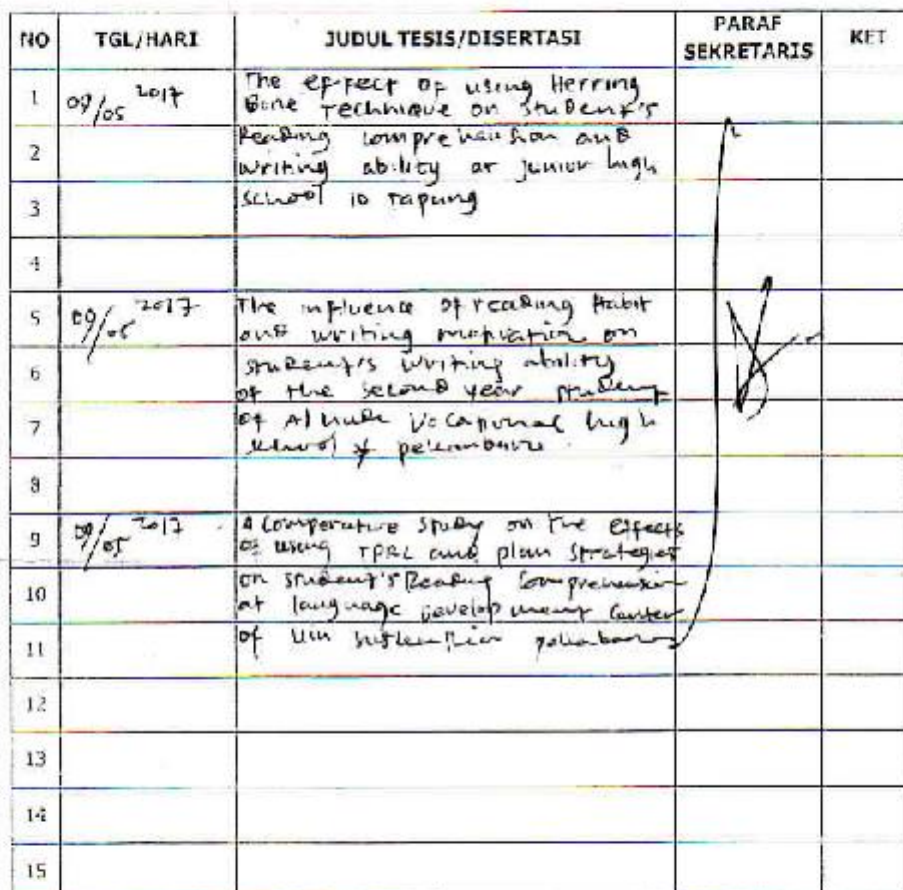 NO TGL/HARI JUDUL TESIS/DISERTASI PARAF SEKRETARIS KET
1 09/05 2017 The effect of using Herring
Bone Technique on Student's
2 Reading comprehension and
writing ability at junior high
3 school 10 Tapung
4
5 09/05 2017 The influence of reading Habit
and writing motivation on
6 student's writing ability
of the second year student
7 of Al Huda Vocational high
school pekanbaru
8
9 09/05 2017 A Comperative Study on the effects
of using TPRL and plan Strategies
10 on student's Reading Comprehension
at language Development Center
11 of UIN
12
13
14
15